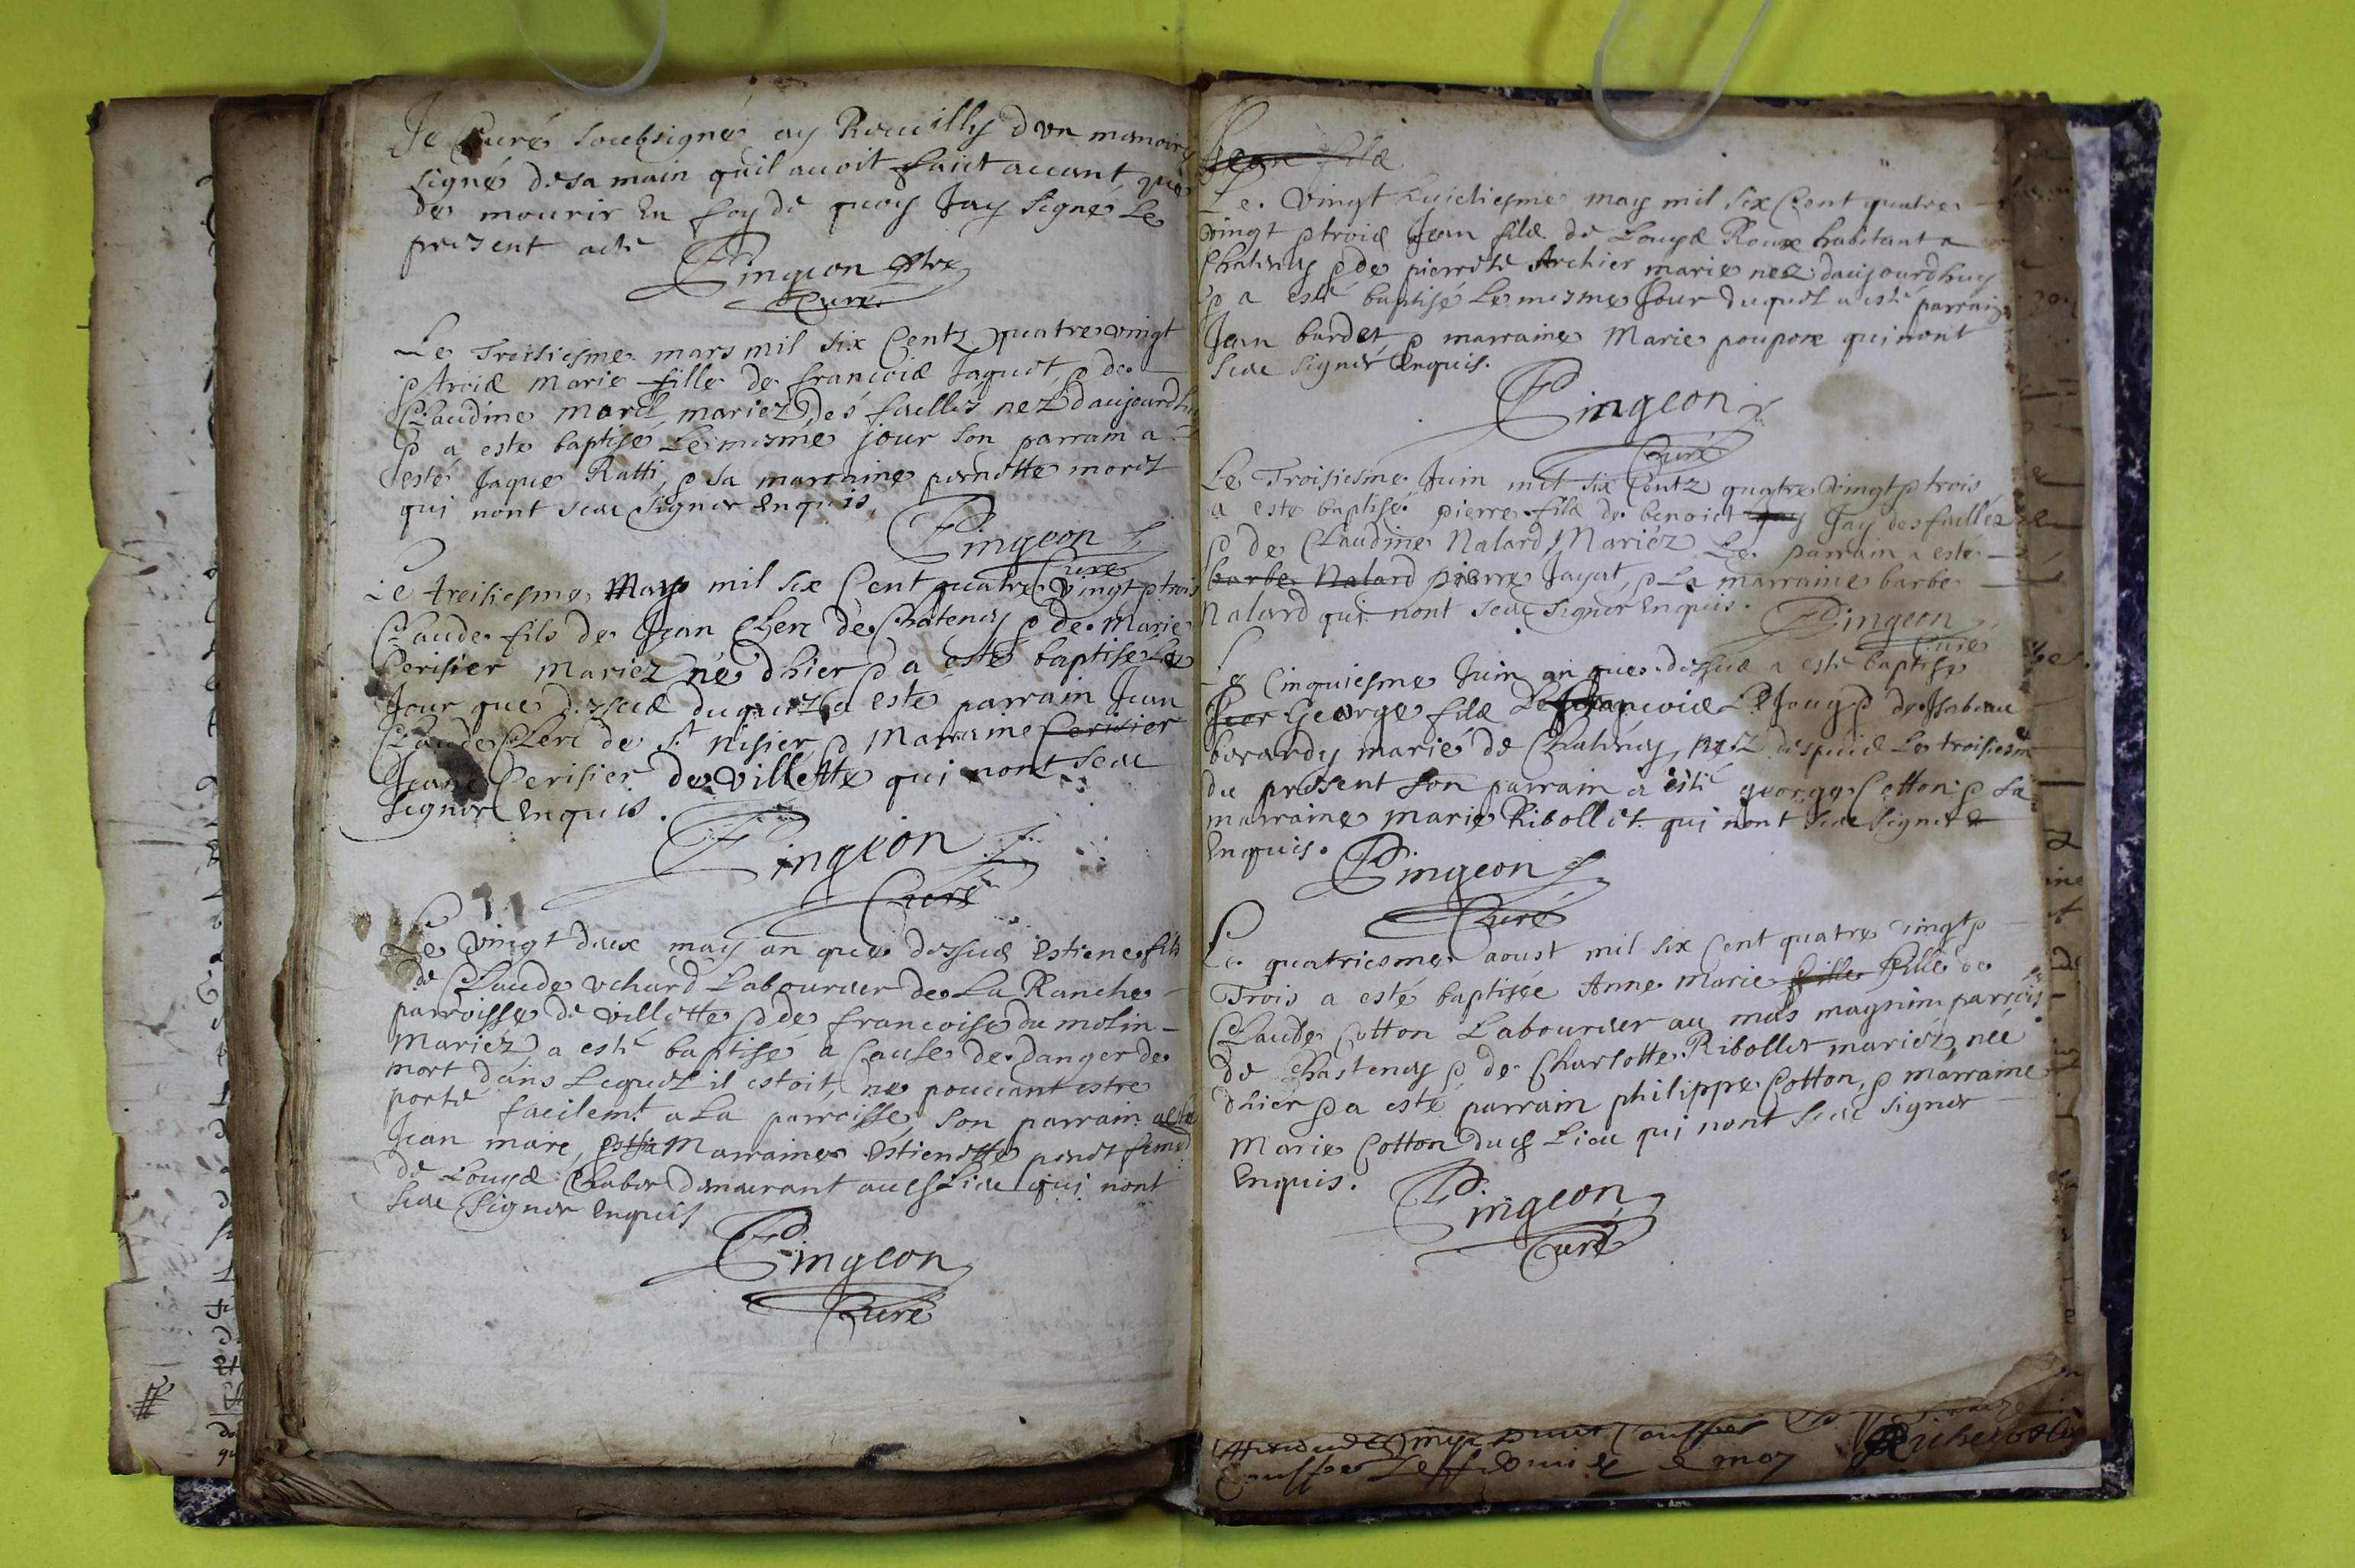 Je Curé soubsigné ay Recuilly d'un manoire
signé de sa main quil avoit faict avant que
de mourir En foy de quoy Jay signé Le
present acte
Pingeon ptre
Curé
Le Troisiesme mars mil six Centz quatre vingt
& trois Marie fille de francois Jaquet, & de
Claudine Morel mariez, des fuelles nez daujourdhuy
& a esté baptisé Le mesme jour son parrain a
esté Jaque Ratti, & sa marraine pernette morel
qui nont sceu signer Enquis,
Pingeon
Curé
Le treisiesme May mil six Cent quatre vingt & trois
Claude fils de Jean Clerc de Chatenay & de Marie
Cerisier Mariez né dhier & a esté baptisé Le
Jour que dessus duquel a esté parrain Jean
Claude Clerc de St nisier & Marraine Cerisier
Jeane Cerisier de villette qui nont sceu
signer Enquis.
Pingeon
Curé
Le vingt deux may an que dessus Estiene fils
de Claude vchard Laboureur de La Ranche
parroisse de villette & de francoise du molin
Mariez, a esté baptisé a Cause de danger de
mort dans Lequel il estoit, ne pouvant estre
porté facilemt a La parroisse, son parrain a esté
Jean mare, Marraine Estienette
de Louys Chabor demeurant audt Lieu qui nont
sceu signer Enquis
Pingeon
Curé
Jean fils
Le vingt huictiesme may mil six Cent quatre
vingt & trois Jean fils de Louys Roux habitant a
Chatenay & de pierrete Archier marie nez daujourdhuy
& a esté baptisé Le mesme Jour duquel a esté parrain
Jean bardet & marraine Marie poupone qui nont
sceu signer Enquis.
Pingeon
Curé
Le Troisiesme Juin mil six Centz quatre vingt & trois
a esté baptisé pierre fils de benoict Jay Jay des fuelles
& de Claudine Nalard Mariez Le parrain a esté
barbe Nalard pierre Jayat, & La marraine barbe
Nalard qui nont sceu signer Enquis.
Pingeon
Curé
Le Cinquiesme Juin an que dessus a esté baptisé
Geor George fils de francois Le Joug & de Isabeau
berardy marié de Chatenay, nez despuis Le troisiesme
du present son parrain a esté george Cotton & sa
marraine marie Ribollet qui nont sceu signer
Enquis.
Pingeon
Curé
Le quatriesme aoust mil six Cent quatre vingt &
Trois a esté baptisée Anne Marie fille fille de
Claude Cotton Laboureur au mas magnin parrois
de Chastenay & de Charlotte Ribollet mariez, née
dhier & a esté parrain philippe Cotton, & marraine
Marie Cotton dudt Lieu qui nont sceu signer
Enquis.
Pingeon
Curé